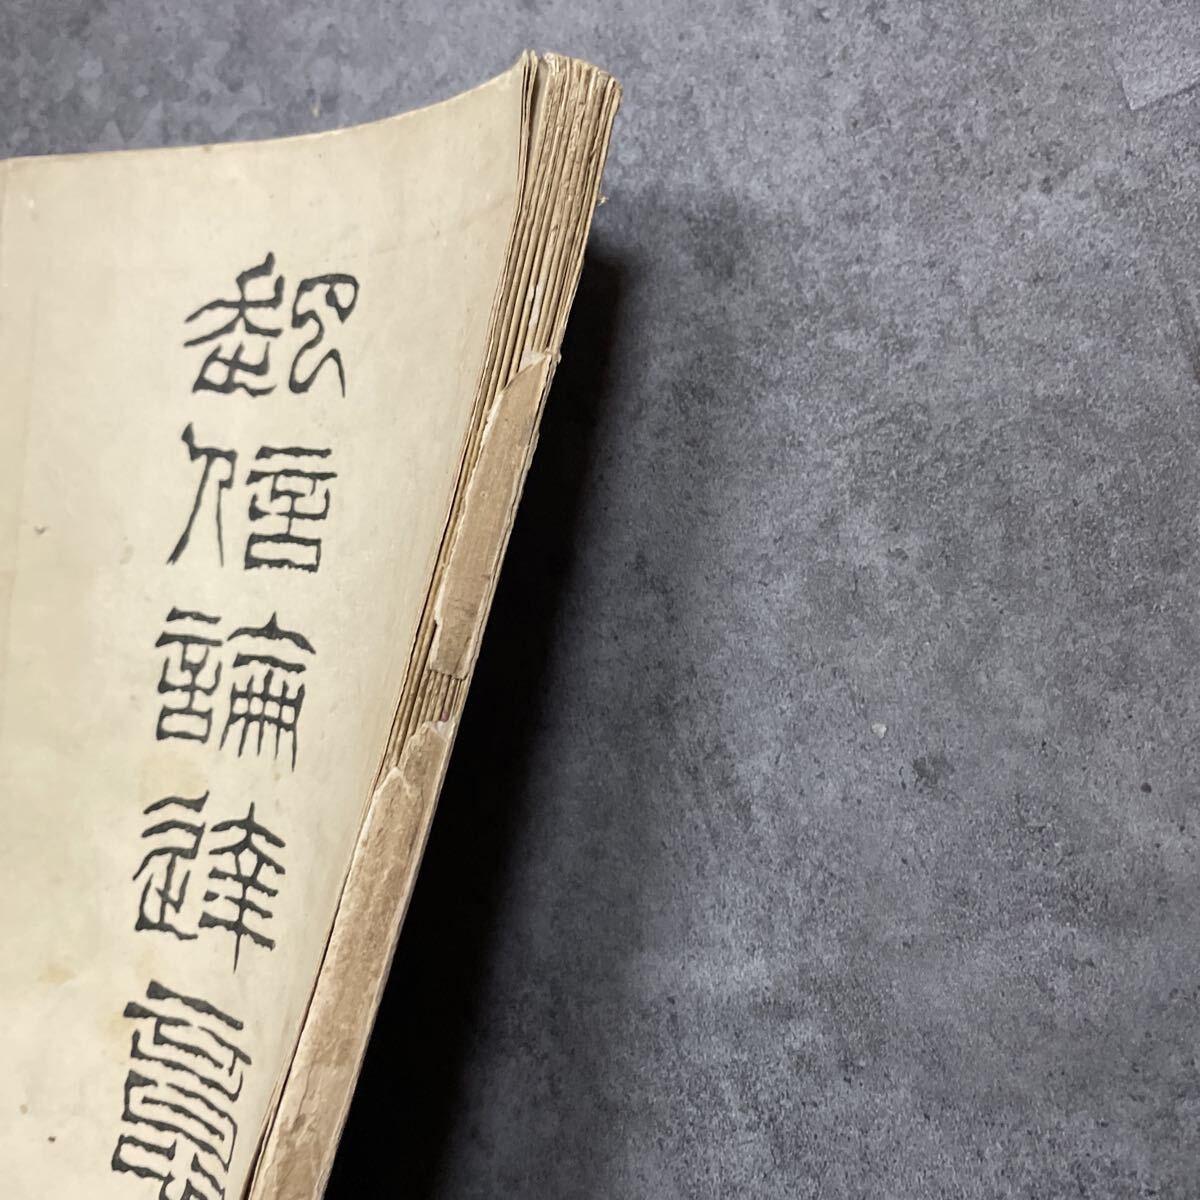 起信論達意